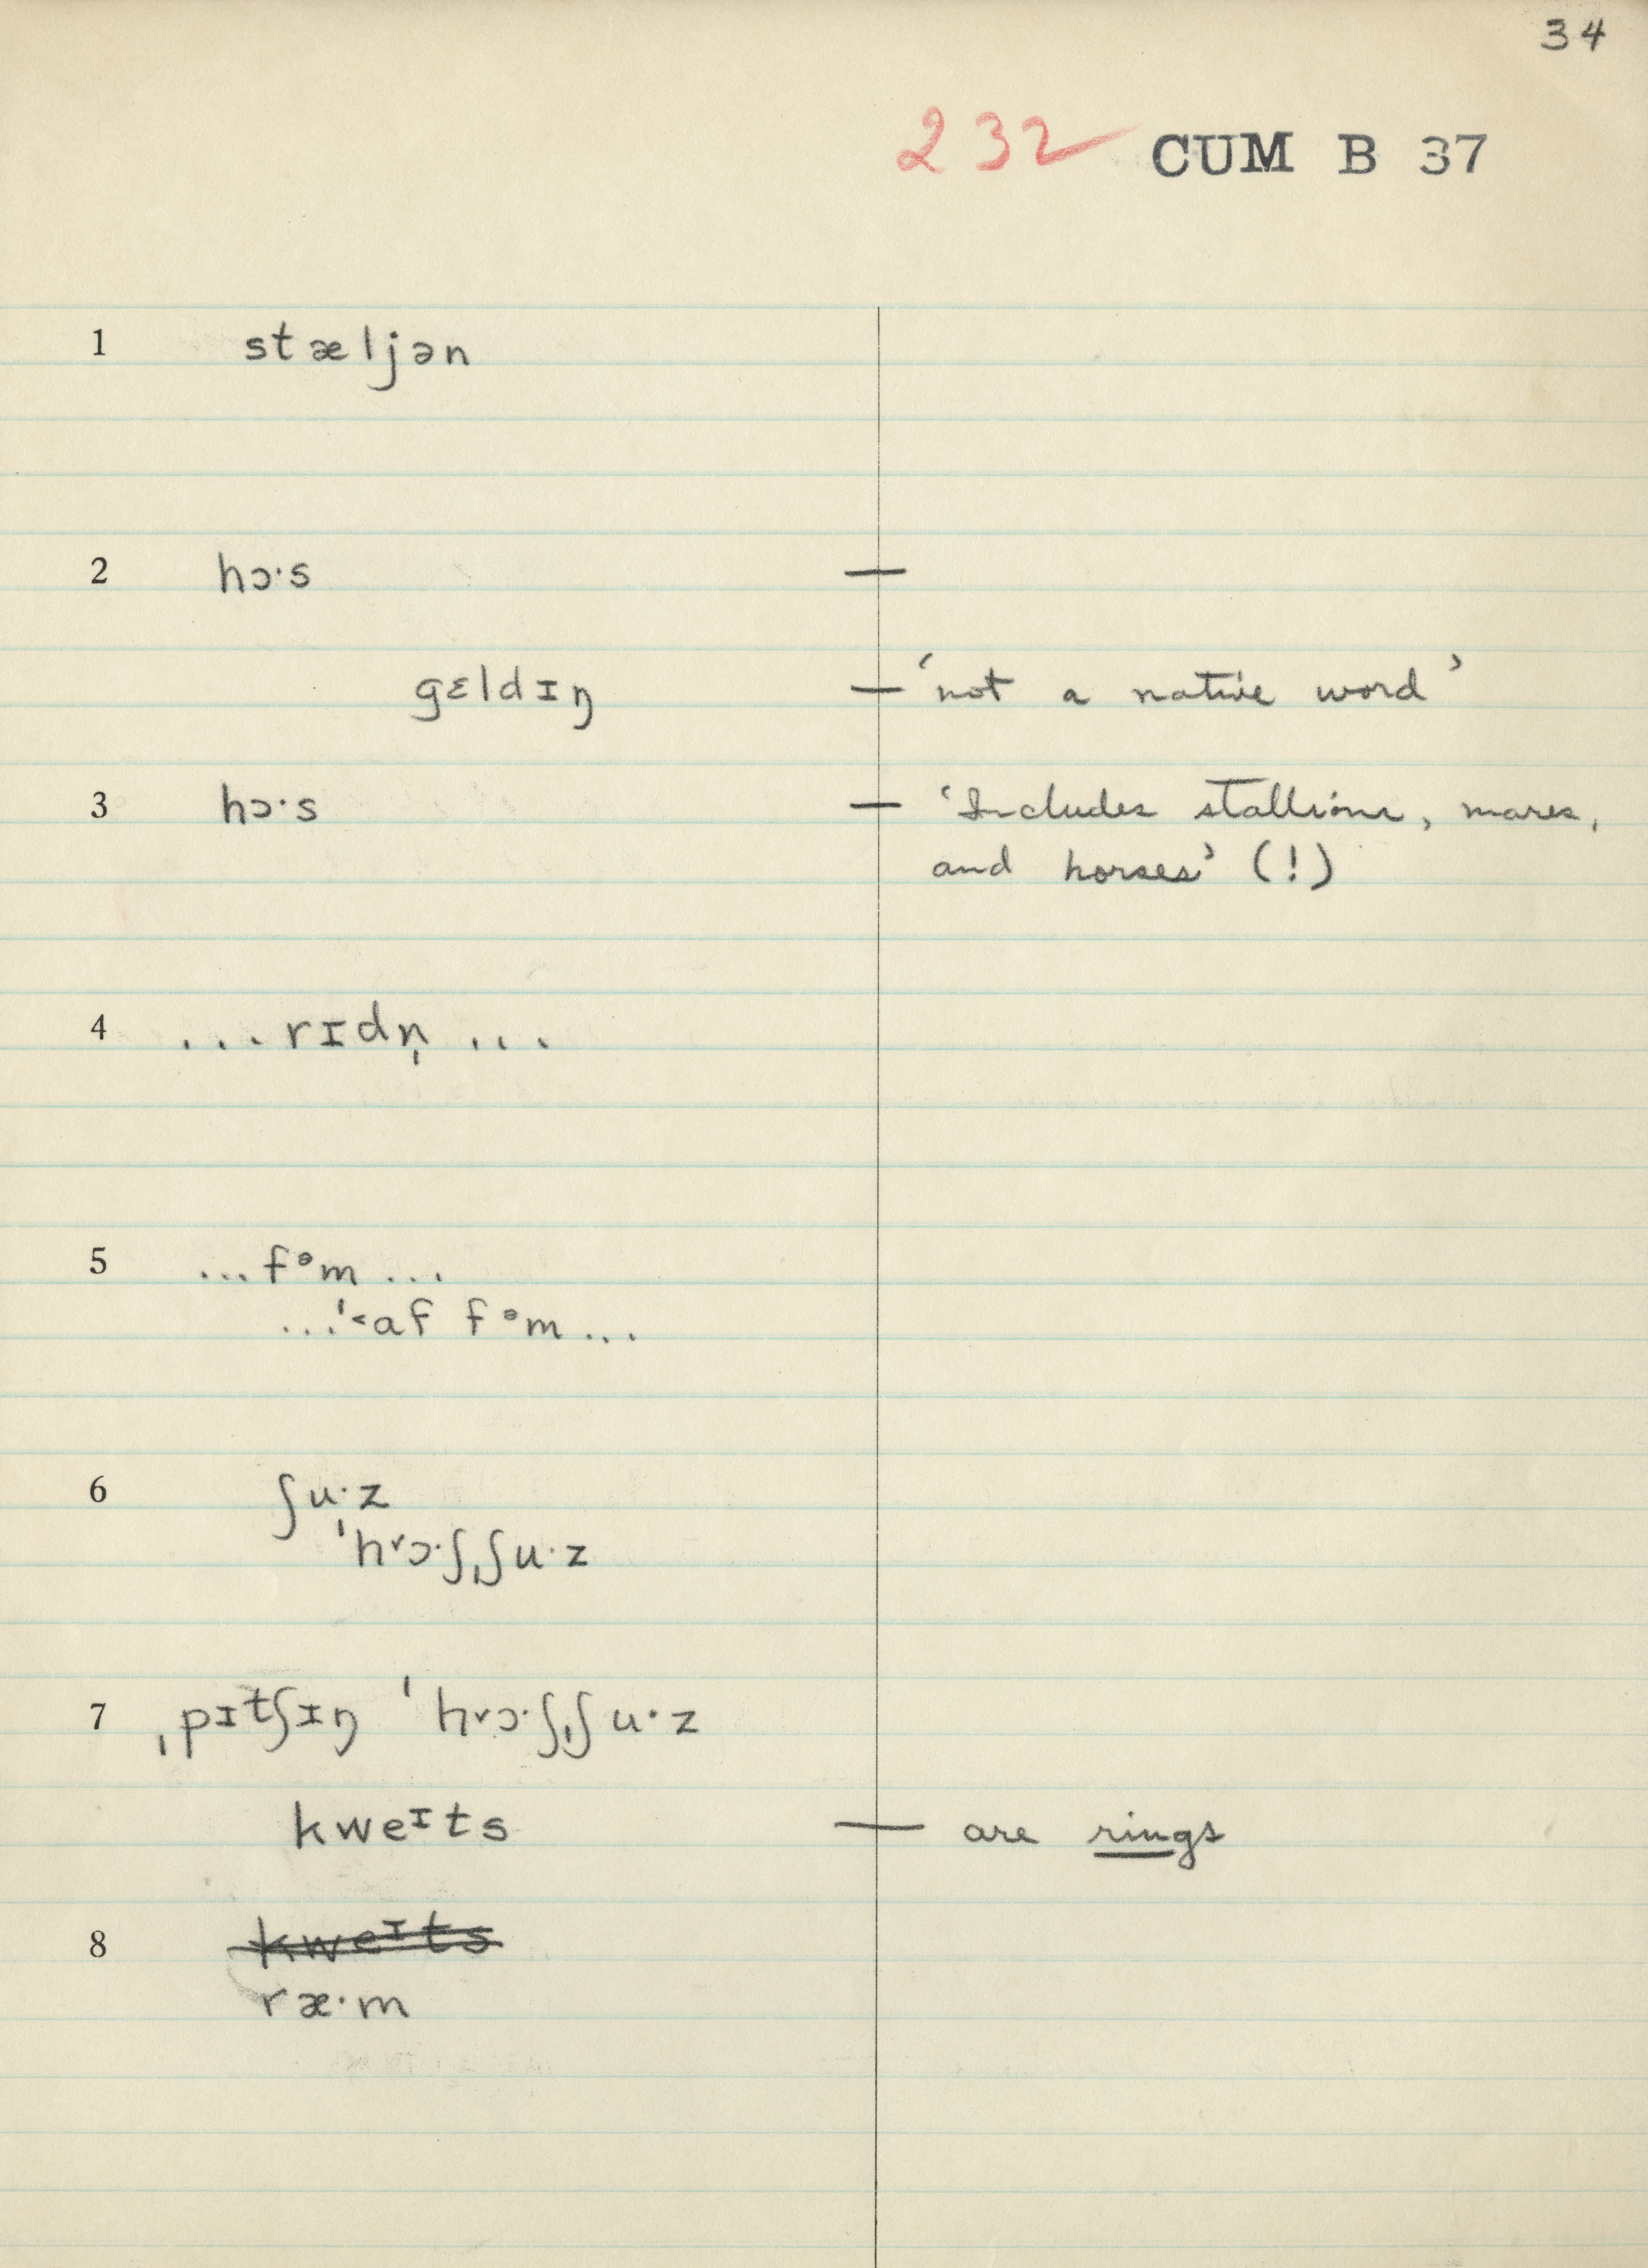 34
232 CUM B 37
1 stæljən
2 hɔ·s —
gɛldɪŋ — ‘not a native word’
3 hɔ·s — ‘Includes stallions, mares,
and horses’ (!)
4 ...rɪdn̩ ...
5 ...fᵊm ...
...ˈ˂af fᵊm ...
6 ʃu·z
ˈh˅ɔ·ʃˌʃu·z
7 ˌpɪtʃɪŋ ˈh˅ɔ·ʃˌʃu·z
kweᶦts — are rings
8 kweᶦts
ræ·m